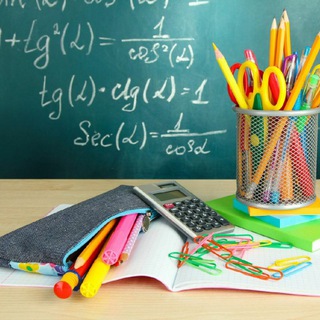 + tg²(α) = 1 / cos²(α)
tg(α) · ctg(α) = 1
Sec(α) = 1 / cosα